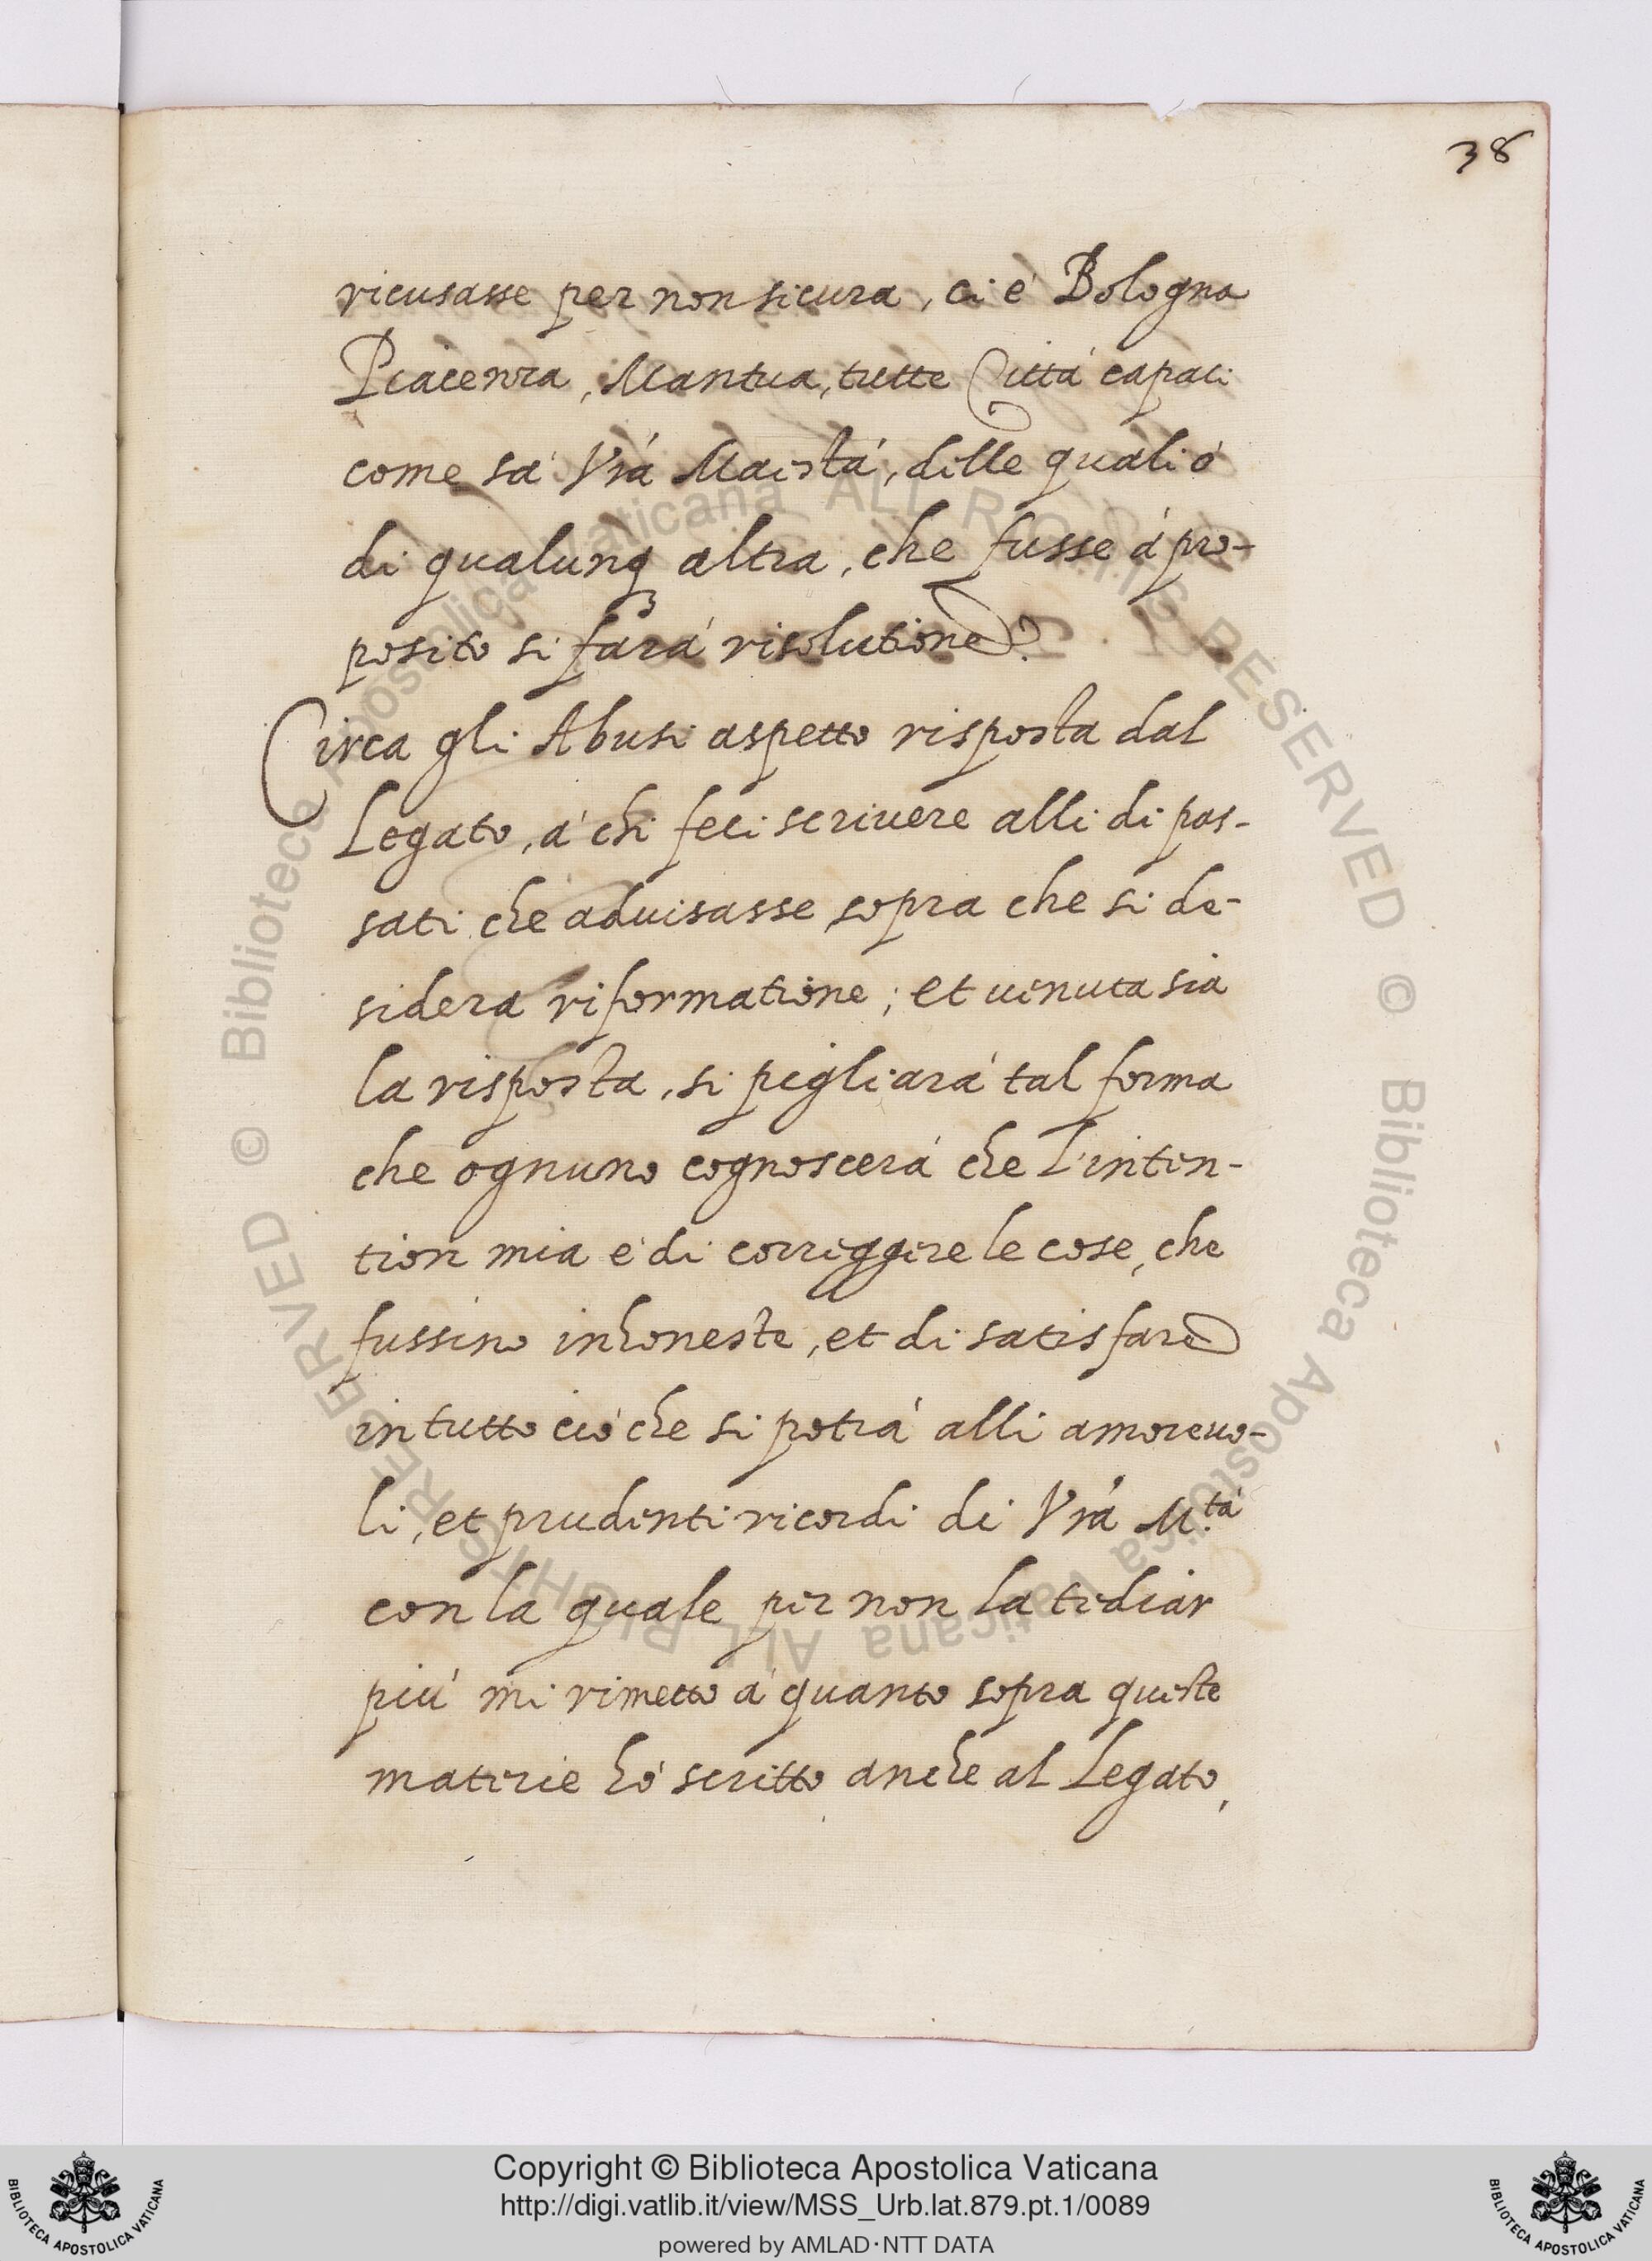 38
ricusasse per non sicura, ci é Bologna
Piacenza, Mantua, tutte Cittá capaci
come sá Vrá Maiestá, delle quali ó
di qualunq altra, che fusse á pro-
posito si fará risolutione.
Circa gli Abusi aspetto risposta dal
Legato, á chi feci scriuere alli di pas-
sati che aduisasse sopra che si de-
sidera riformatione; et uenuta sia
la risposta, si pigliará tal forma
che ognuno cognoscerá che l'inten-
tion mia é di correggere le cose, che
fussino inhoneste, et di satisfare
in tutto ció che si potrá alli amoreuo-
li, et prudenti ricordi di Vrá M.tá
con la quale per non la tediar
piú mi rimetto á quanto sopra queste
materie hó scritto anche al Legato,
© Biblioteca Apostolica Vaticana ALL RIGHTS RESERVED
© Biblioteca Apostolica Vaticana ALL RIGHTS RESERVED
BIBLIOTECA APOSTOLICA VATICANA
Copyright © Biblioteca Apostolica Vaticana
http://digi.vatlib.it/view/MSS_Urb.lat.879.pt.1/0089
powered by AMLAD·NTT DATA
BIBLIOTECA APOSTOLICA VATICANA